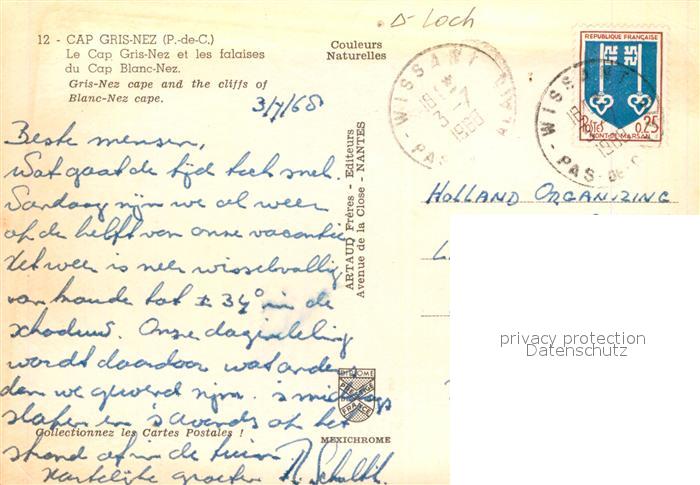 D-Loch
12 - CAP GRIS-NEZ (P.-de-C.)
Le Cap Gris-Nez et les falaises
du Cap Blanc-Nez.
Gris-Nez cape and the cliffs of
Blanc-Nez cape.
Couleurs
Naturelles
3/7/68
Beste mensen,
Wat gaat de tijd toch snel.
Vandaag zijn we al weer
op de helft van onze vacantie.
Het weer is zeer wisselvallig
van koude tot ± 34° in de
schaduw. Onze dagindeling
wordt daardoor wat anders
dan we gewend zijn. 's middags
slapen en 's avonds op het
strand of in de tuin.
Hartelijke groeten
Collectionnez les Cartes Postales !
ARTAUD Frères - Editeurs
Avenue de la Close - NANTES
MEXICHROME
FRANCE
WISSANT
3-7
PAS-
REPUBLIQUE FRANÇAISE
POSTES 0,25
MONT-DE-MARSAN
WISSANT
PAS-DE-C
HOLLAND ORGANIZING
privacy protection
Datenschutz